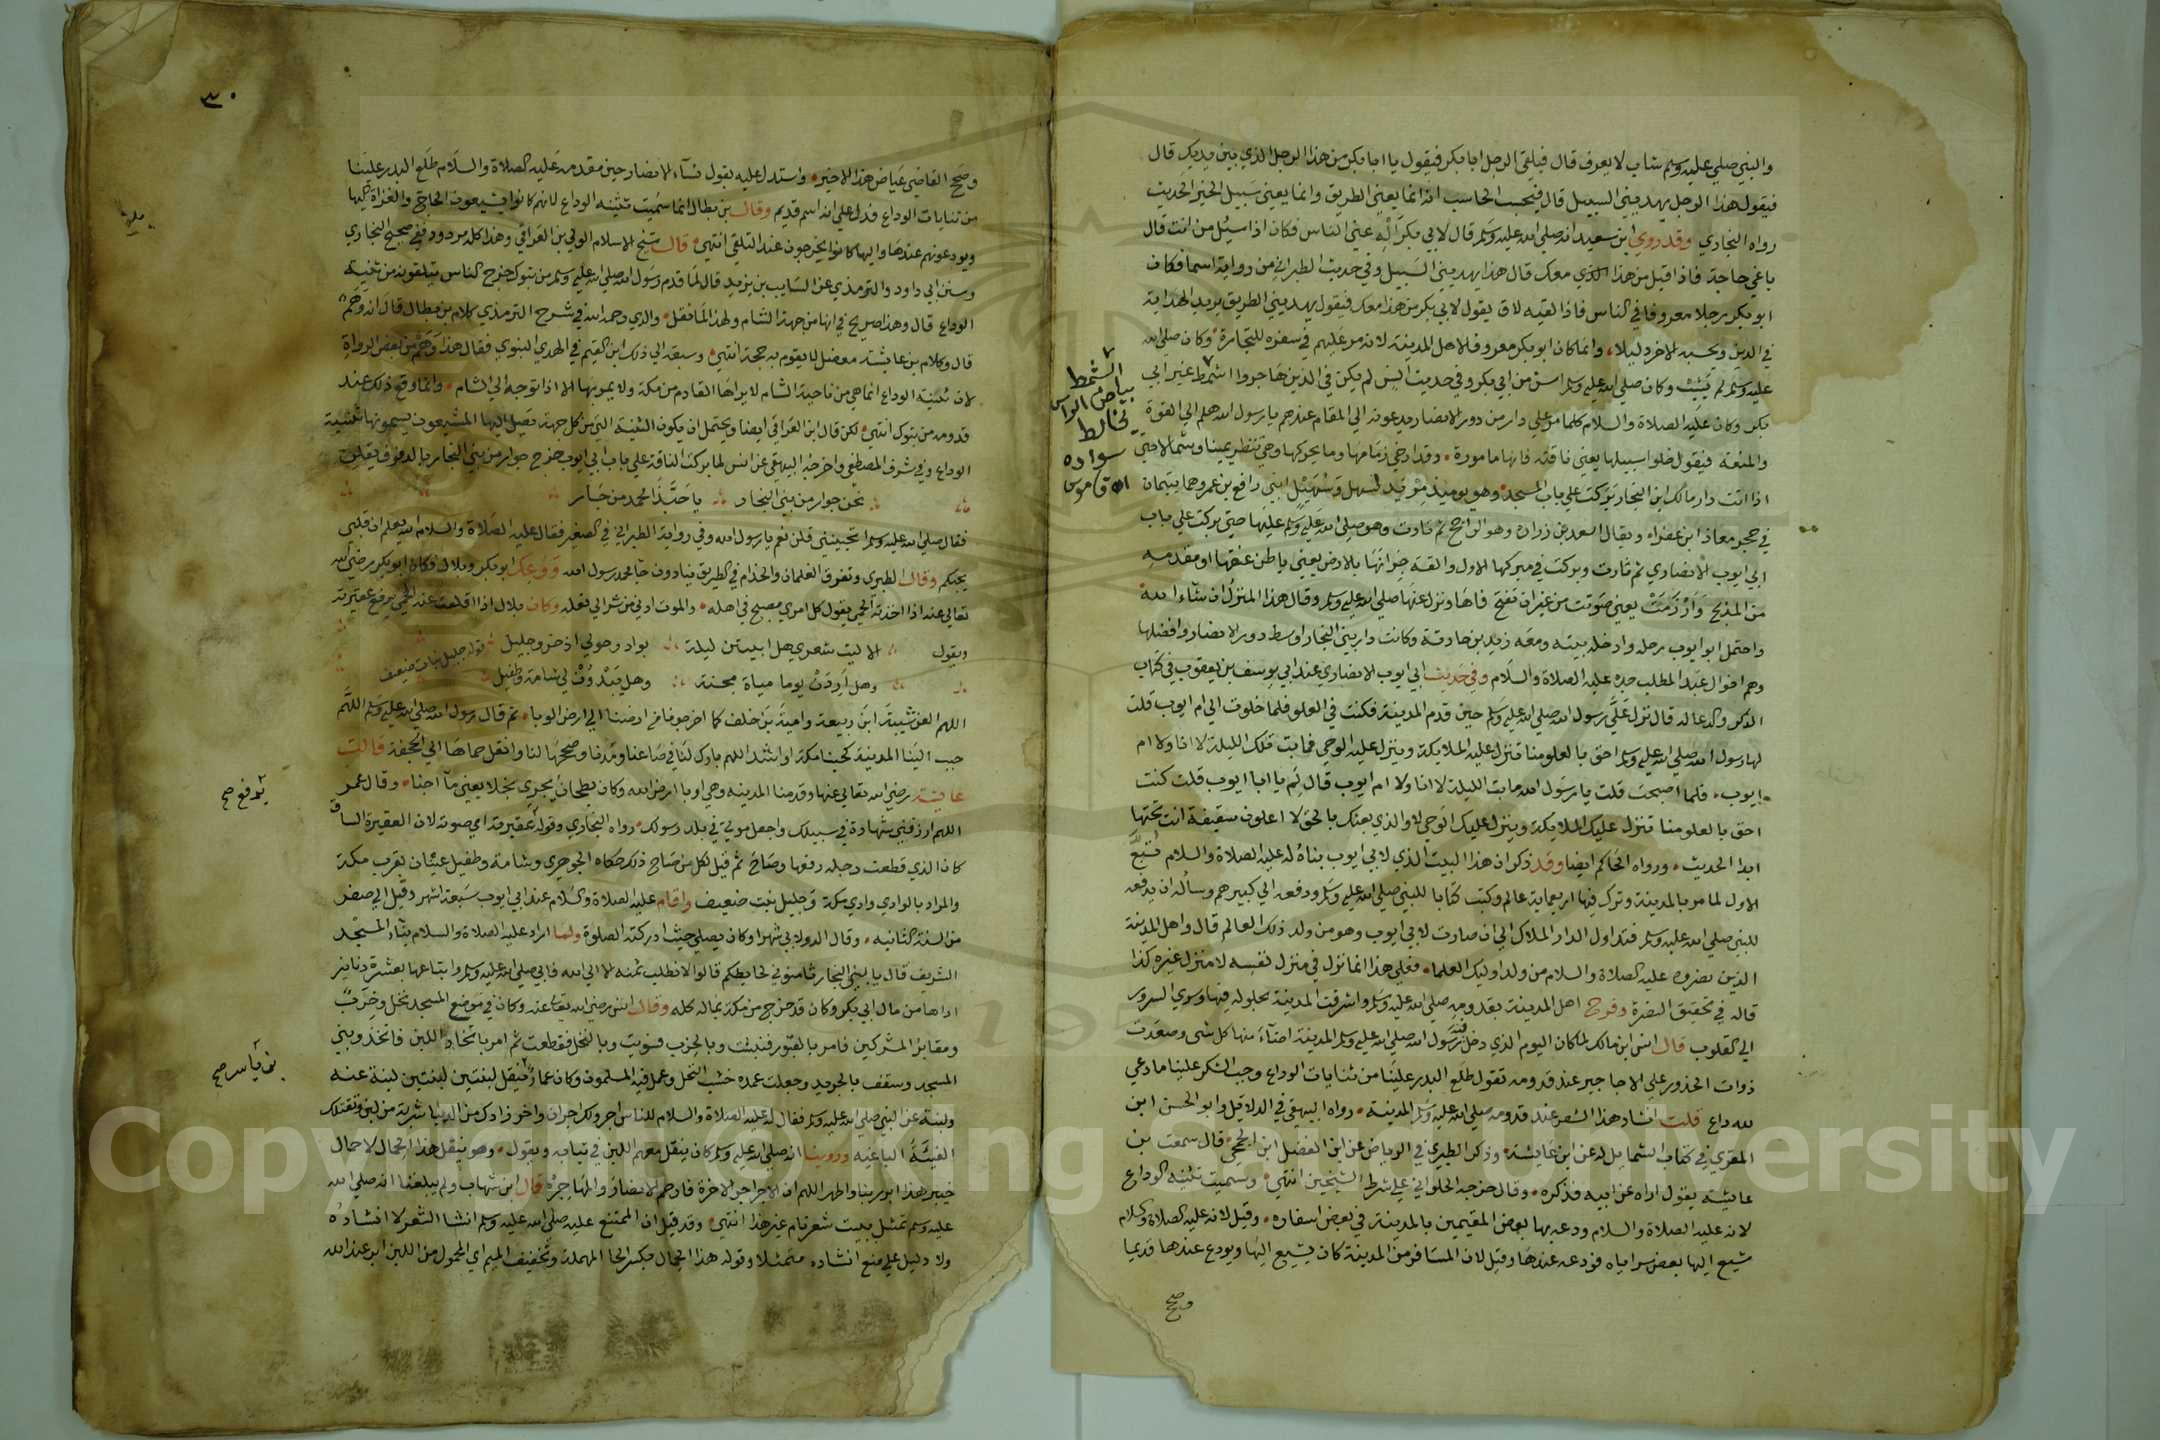 والنبي صلى عليه وسلم شاب لا يعرف قال فيلقى الرجل ابا بكر فيقول يا ابا بكر من هذا الرجل الذي بين يديك قال
فيقول هذا الرجل يهديني السبيل قال فيحسب الحاسب انه انما يعني الطريق وانما يعني سبيل الخير الحديث
رواه البخاري وقد روى ابن سعد انه صلى الله عليه وسلم قال لابي بكر أَلْهِ عني الناس فكان اذا سئل من انت قال
باغي حاجة فاذا قيل من هذا الذي معك قال هذا يهديني السبيل وفي حديث الطبراني من رواية اسما وكان
ابو بكر رجلا معروفا في الناس فاذا لقيه لاق يقول لابي بكر من هذا معك فيقول يهديني الطريق يريد الهداية
في الدين ويحسبه الاخر دليلا، وانما كان ابو بكر معروفا لاهل المدينة لانه مر عليهم في سفره للتجارة وكان صلى الله
عليه وسلم لم يشب وكان صلى الله عليه وسلم اسن من ابي بكر وفي حديث انس لم يكن في الذين هاجروا اشمط غير ابي
بكر وكان عليه الصلاة والسلام كلما مر على دار من دور الانصار يدعونه الى المقام عندهم يا رسول الله هلم الى القوة
والمنعة فيقول خلوا سبيلها يعني ناقته فانها مامورة وقد ارخى زمامها وما يحركها وهي تنظر يمينا وشمالا حتى
اذا اتت دار مالك ابن النجار بركت على باب المسجد وهو يومئذ مربد لسهل وسهيل ابني رافع بن عمرو وهما يتيمان
في حجر معاذ ابن عفراء ويقال اسعد بن زرارة وهو الراجح ثم ثارت وهو صلى الله عليه وسلم عليها حتى بركت على باب
ابي ايوب الانصاري ثم ثارت وبركت في مبركها الاول والقت جرانها بالارض يعني باطن عنقها او مقدمه
من المذبح وَأَرْزَمَتْ يعني صوتت من غير ان تفتح فاها ونزل عنها صلى الله عليه وسلم وقال هذا المنزل ان شاء الله
واحتمل ابو ايوب رحله وادخله بيته ومعه زيد بن حارثة وكانت دار بني النجار اوسط دور الانصار وافضلها
وهم اخوال عبد المطلب جده عليه الصلاة والسلام وفي حديث ابي ايوب الانصاري عند ابي يوسف بن يعقوب في كتاب
الذكر والدعا له قال نزل عليَّ رسول الله صلى الله عليه وسلم حين قدم المدينة فكنت في العلو فلما خلوت الى ام ايوب قلت
لها رسول الله صلى الله عليه وسلم احق بالعلو منا تنزل عليه الملايكة وينزل عليه الوحي فما بت تلك الليلة لا انا ولا ام
ايوب، فلما اصبحت قلت يا رسول الله ما بت الليلة لا انا ولا ام ايوب قال لِمَ يا ابا ايوب قلت كنت
احق بالعلو منا تنزل عليك الملايكة وينزل عليك الوحي لا والذي بعثك بالحق لا اعلون سقيفة انت تحتها
ابدا الحديث، ورواه الحاكم ايضا وقد ذكر ان هذا البيت الذي لابي ايوب بناه له عليه الصلاة والسلام تُبَّعٌ
الاول لما مر بالمدينة وترك فيها اربعماية عالم وكتب كتابا للنبي صلى الله عليه وسلم ودفعه الى كبيرهم وساله ان يدفعه
للنبي صلى الله عليه وسلم فتداول الدار الملاك الى ان صارت لابي ايوب وهو من ولد ذلك العالم قال واهل المدينة
الذين نصروه عليه الصلاة والسلام من ولد اوليك العلما، فعلى هذا انما نزل في منزل نفسه لا منزل غيره كذا
قاله في تحقيق النصرة وفرح اهل المدينة بقدومه صلى الله عليه وسلم واشرقت المدينة بحلوله فيها وسرى السرور
الى القلوب قال انس ابن مالك لما كان اليوم الذي دخل فيه رسول الله صلى الله عليه وسلم المدينة اضاء منها كل شي وصعدت
ذوات الخدور على الاجاجير عند قدومه تقول طلع البدر علينا من ثنيات الوداع وجب الشكر علينا ما دعى
لله داع قلت انشاد هذا الشعر عند قدومه صلى الله عليه وسلم المدينة، رواه البيهقي في الدلايل وابو الحسن ابن
المقري في كتاب الشمايل له عن ابن عايشة، وذكر الطبري في الرياض عن ابن الفضل ابن الحجي قال سمعت بن
عايشة يقول اراه عن ابيه فذكره، وقال خرجه الحلواني على شرط الشيخين انتهى، وسميت ثنية الوداع
لانه عليه الصلاة والسلام ودعه بها بعض المقيمين بالمدينة في بعض اسفاره، وقيل لانه عليه الصلاة والسلام
شيع اليها بعض سراياه فودعه عندها وقيل لان المسافر من المدينة كان يشيع اليها ويودع عندها قديما
وصحح
الشمط
بياض الراس
يخالط
سواده
اه قاموس
٣٠
وصحح القاضي عياض هذا الاخير، واستدل عليه بقول نساء الانصار حين مقدمه عليه الصلاة والسلام طلع البدر علينا
من ثنايات الوداع فدل على انه اسم قديم وقال بن بطال انما سميت بثنية الوداع لانهم كانوا يشيعون الحاج والغزاة اليها
ويودعونهم عندها واليها كانوا يخرجون عند التلقي انتهى، قال شيخ الاسلام الولي بن العراقي وهذا كله مردود ففي صحيح البخاري
وسنن ابي داود والترمذي عن السايب بن يزيد قال لما قدم رسول الله صلى الله عليه وسلم من تبوك خرج الناس يتلقونه من ثنية
الوداع قال وهذا صريح في انها من جهة الشام ولهذا لما نقل والدي رحمه الله في شرح الترمذي كلام بن بطال قال انه وَهَم
قال وكلام بن عايشة معضل لا يقوم به حجة انتهى، وسبقه الى ذلك ابن القيم في الهدي النبوي فقال هذا وهم من بعض الرواة
لان ثنية الوداع انما هي من ناحية الشام لا يراها القادم من مكة ولا يمر بها الا اذا توجه الى الشام، وانما وقع ذلك عند
قدومه من تبوك انتهى، لكن قال ابن العراقي ايضا ويحتمل ان يكون الثنية التي من كل جهة، فصل اليها المشيعون يسمونها بثنية
الوداع وفي شرف المصطفى واخرجه البيهقي عن انس لما بركت الناقة على باب ابي ايوب خرج جوار من بني النجار بالدفوف يقلن
نحن جوار من بني النجار يا حَبَّذَا محمد من جار
فقال صلى الله عليه وسلم اتحببنني قلن نعم يا رسول الله وفي رواية الطبراني في الصغير فقال عليه الصلاة والسلام الله يعلم ان قلبي
يحبكم وقال الطبري وتفرق الغلمان والخدام في الطريق ينادون جا محمد رسول الله وَوُعِكَ ابو بكر وبلال وكان ابو بكر رضي الله
تعالى عنه اذا اخذته الحمى يقول كل امرئ مصبح في اهله، والموت ادنى من شراك نعله وكان بلال اذا اقلعت عنه الحمى يرفع عقيرته
ويقول الا ليت شعري هل ابيتن ليلة بواد وحولي اذخر وجليل قوله جليل نبات ضعيف
وهل أَرِدَنْ يوما مياة مجنة وهل يَبْدُوَنْ لي شامة وطفيل
اللهم العن شيبة ابن ربيعة وامية بن خلف كما اخرجونا من ارضنا الى ارض الوبا، ثم قال رسول الله صلى الله عليه وسلم اللهم
حبب الينا المدينة كحبنا مكة او اشد اللهم بارك لنا في صاعنا ومدنا وصححها لنا وانقل حماها الى الجحفة قالت
عايشة رضي الله تعالى عنها وقدمنا المدينه وهي اوبا ارض الله وكان بطحان يجري نجلا يعني ماء اجنا، وقال عمر
اللهم ارزقني شهادة في سبيلك واجعل موتي في بلد رسولك، رواه البخاري وقوله عقيرته اي صوته لان العقيرة الساق
كان الذي قطعت رجله رفعها وصاح ثم قيل لكل من صاح ذلك حكاه الجوهري وشامة وطفيل عينان بقرب مكة
والمراد بالوادي وادي مكة وجليل نبت ضعيف واقام عليه الصلاة والسلام عند ابي ايوب سبعة اشهر وقيل الى صفر
من السنة الثانيه، وقال الدولابي شهرا وكان يصلي حيث ادركته الصلوة ولما اراد عليه الصلاة والسلام بناء المسجد
الشريف قال يا بني النجار ثامنوني لحايطكم قالوا لا نطلب ثمنه الا الى الله فابى صلى الله عليه وسلم وابتاعها بعشرة دنانير
اداها من مال ابي بكر وكان قد خرج من مكة بماله كله وقال انس رضي الله تعا عنه وكان في موضع المسجد نخل وخِرَبٌ
ومقابر المشركين فامر بالقبور فنبشت وبالخرب فسويت وبالنخل فقطعت ثم امر باتخاذ اللبن فاتخذ وبني
المسجد وسقف بالجريد وجعلت عمده خشب النخل وعمل فيه المسلمون وكان عمار ينقل لبنتين لبنتين لبنة عنه
ولبنة عن النبي صلى الله عليه وسلم فقال له عليه الصلاة والسلام للناس اجر ولك اجران واخر زادك من الدنيا شربة من لبن وتقتلك
الفئة الباغيه وروينا انه صلى الله عليه وسلم كان ينقل معهم اللبن في ثيابه ويقول، وهو ينقل هذا الحمال لا حمال
خيبر هذا ابر ربنا واطهر اللهم ان الاجر اجر الاخرة فارحم الانصار والمهاجره قال ابن شهاب ولم يبلغنا انه صلى الله
عليه وسلم تمثل ببيت شعر تام غير هذا انتهى، وقد قيل ان الممتنع عليه صلى الله عليه وسلم انشا الشعر لا انشاده
ولا دليل على منع انشاده متمثلا وقوله هذا الحمال بكسر الحا المهملة وتخفيف الميم اي المحمول من اللبن ابر عند الله
يرفع صح
Copyright © King Saud University